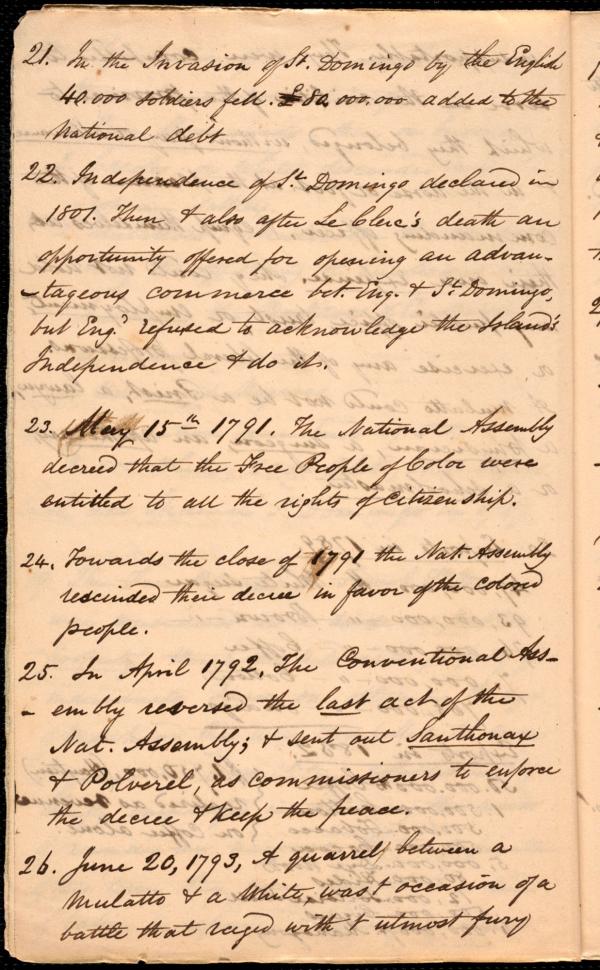 21. In the Invasion of St. Domingo by the English
40.000 soldiers fell. £80.000.000 added to the
National debt
22. Independence of St. Domingo declared in
1801. Then & also after Le Clerc's death an
opportunity offered for opening an advan-
-tageous commerce bet. Eng. & St. Domingo,
but Eng.d refused to acknowledge the Island's
Independence & do it.
23. May 15th 1791. The National Assembly
decreed that the Free People of Color were
entitled to all the rights of citizenship.
24. Towards the close of 1791 the Nat. Assembly
rescinded their decree in favor of the colored
people.
25. In April 1792, The Conventional Ass-
- embly reversed the last act of the
Nat. Assembly; & sent out Santhonax
& Polverel, as commissioners to enforce
the decree & keep the peace.
26. June 20, 1793, A quarrel between a
Mulatto & a White, was t occasion of a
battle that raged with t utmost fury